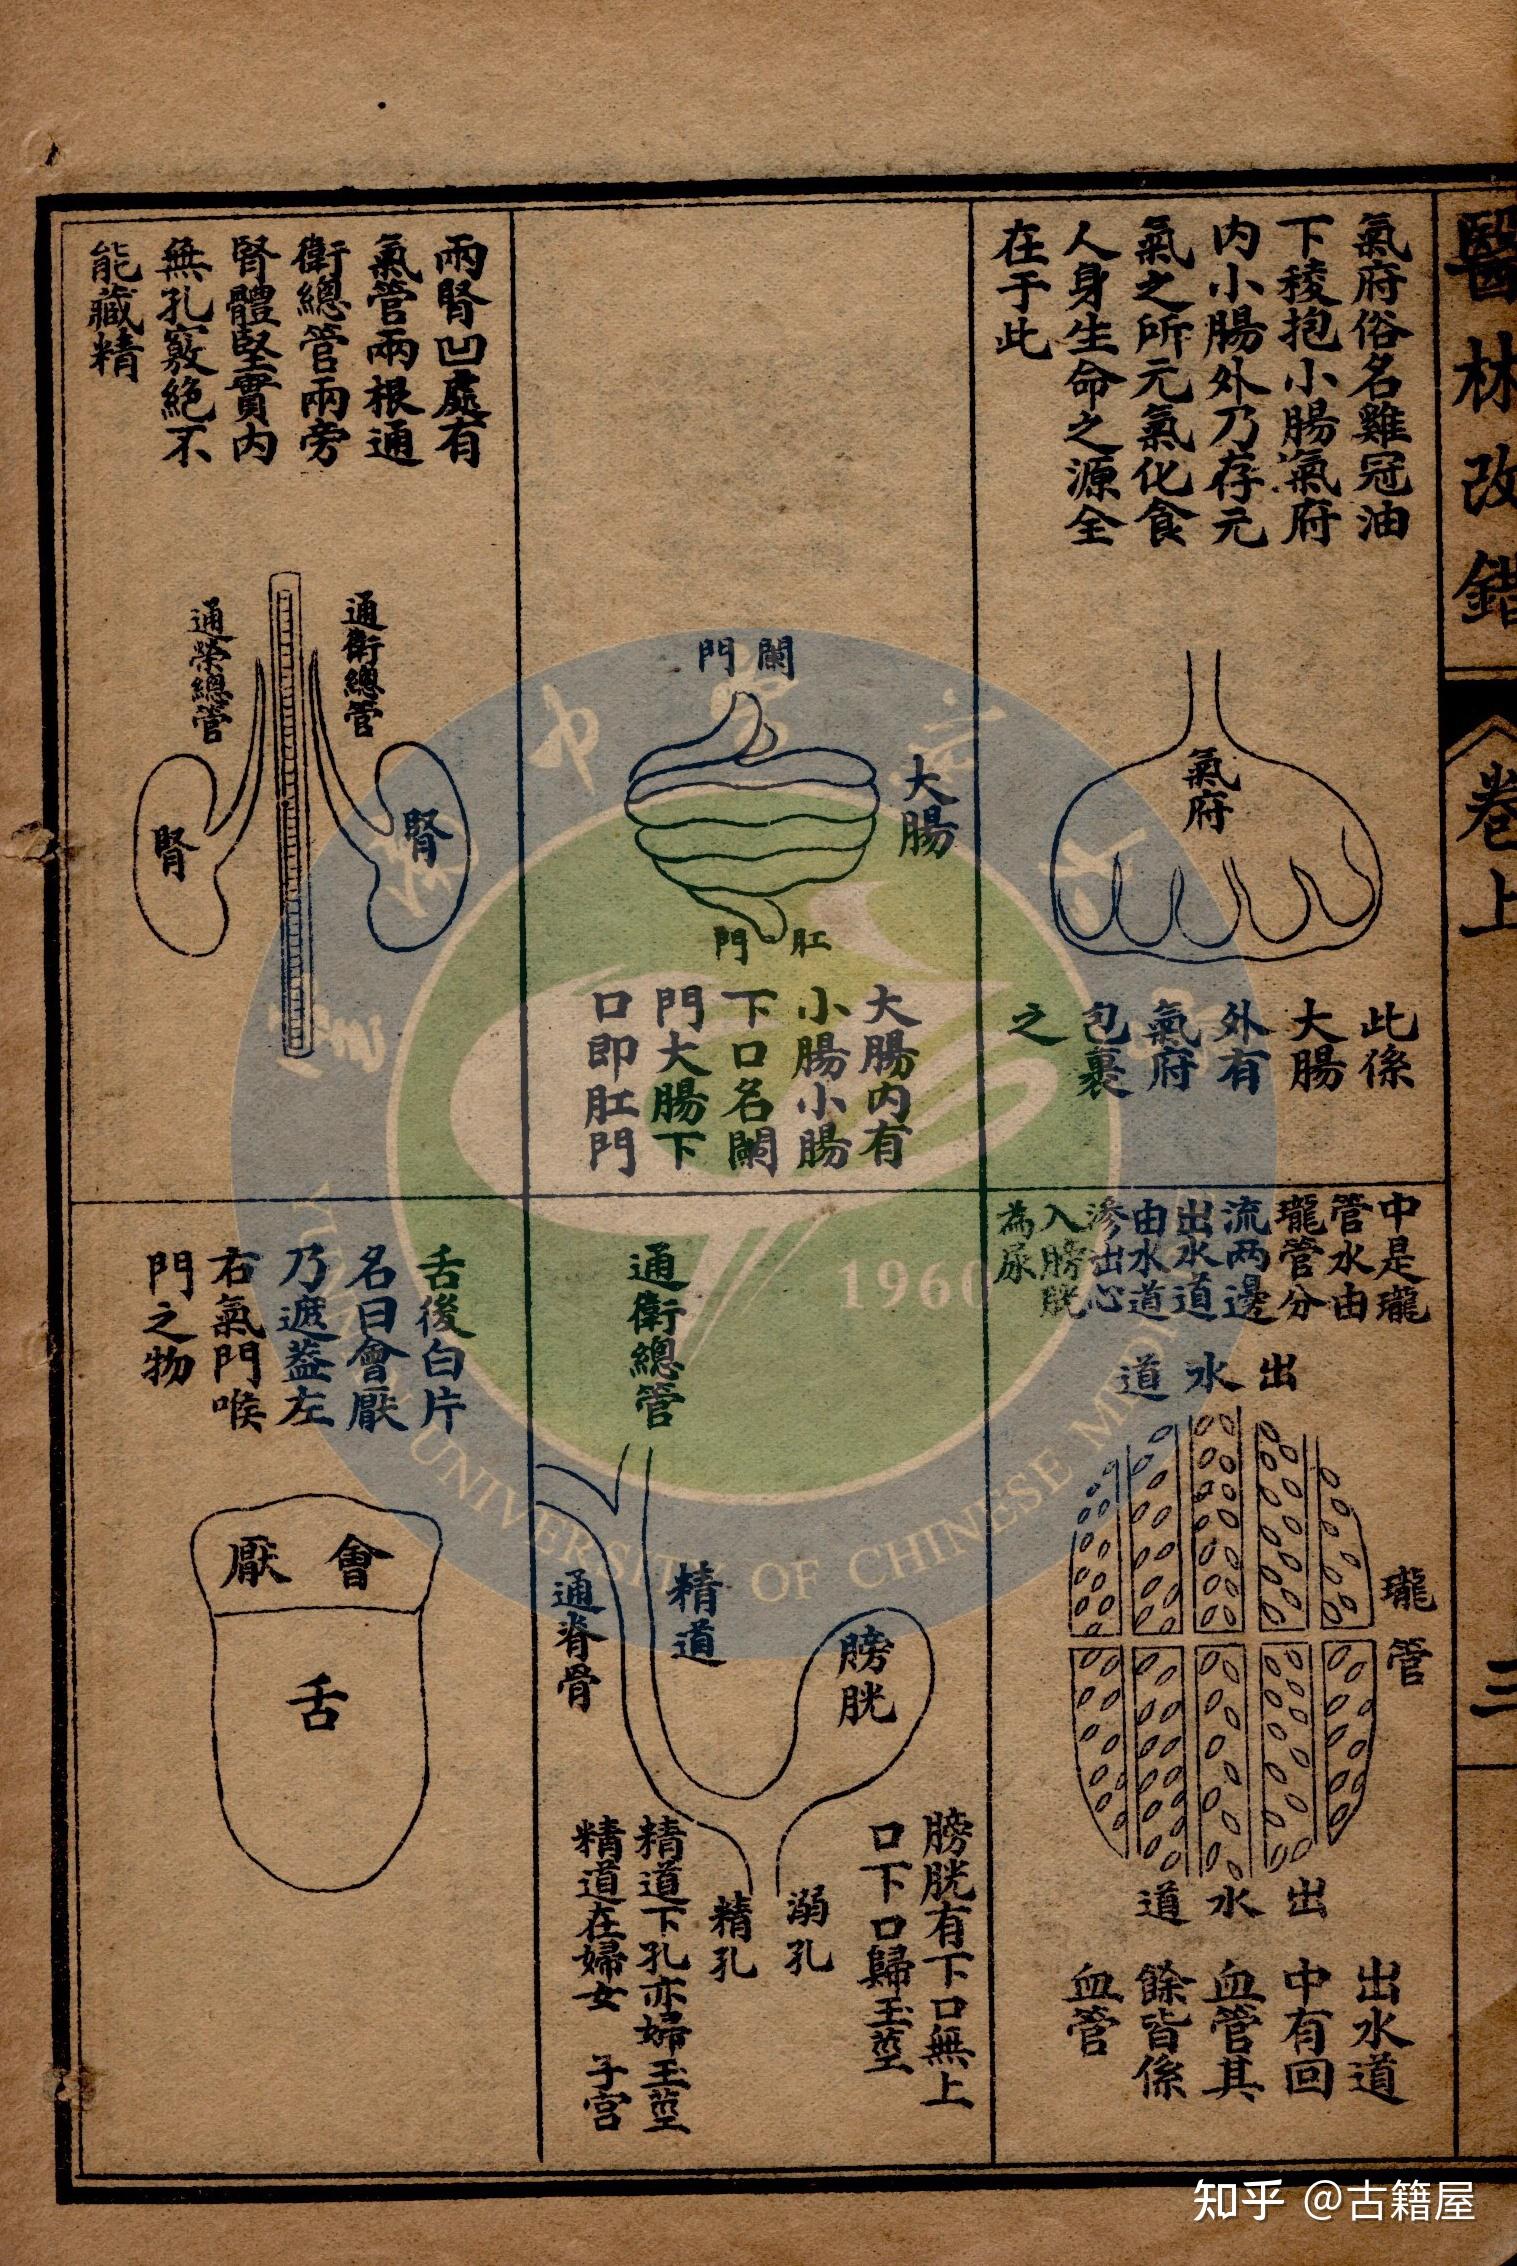 醫林改錯
卷上
三
氣府俗名雞冠油
下稜抱小腸氣府
内小腸外乃存元
氣之所元氣化食
人身生命之源全
在于此
氣府
此係
大腸
外有
氣府
包裹
之
闌門
大腸
肛門
大腸内有
小腸小腸
下口名闌
門大腸下
口即肛門
兩腎凹處有
氣管兩根通
衛總管兩旁
腎體堅實内
無孔竅絶不
能藏精
通衛總管
通榮總管
腎
腎
中是瓏
管水由
瓏管分
流两邊
出水道
由水道
滲出沁
入膀胱
為尿
出水道
瓏管
出水道
出水道
中有回
血管其
餘皆係
血管
通衛總管
精道
通脊骨
膀胱
溺孔
精孔
膀胱有下口無上
口下口歸玉莖
精道下孔亦歸玉莖
精道在婦女 子宫
舌後白片
名曰會厭
乃遮蓋左
右氣門喉
門之物
會厭
舌
1960
UNIVERSITY OF CHINESE MEDI
知乎 @古籍屋